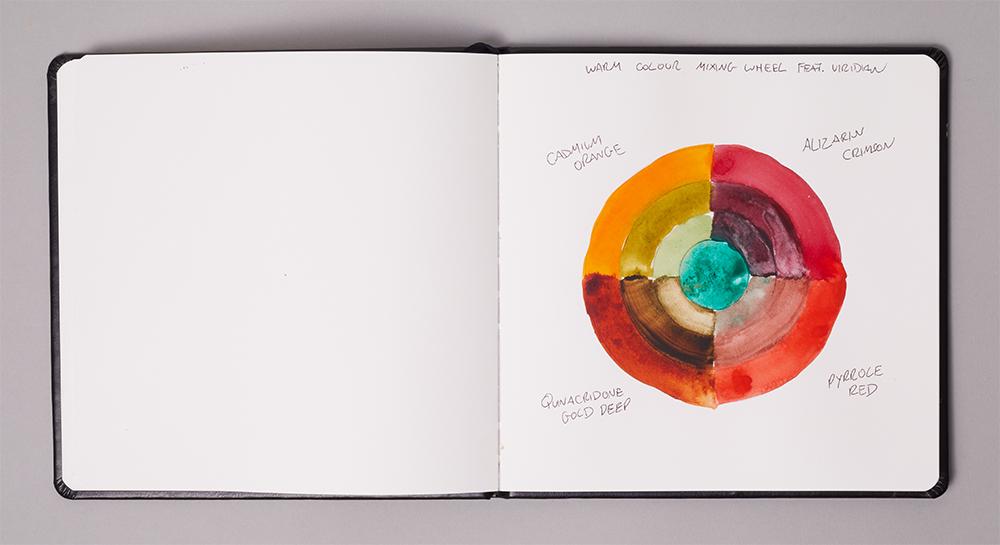 WARM COLOUR MIXING WHEEL FEAT. VIRIDIAN
CADMIUM
ORANGE
ALIZARIN
CRIMSON
QUNACRIDONE
GOLD DEEP
PYRROLE
RED